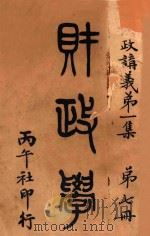 政講義第一集　第六冊
財政學
丙午社印行
www.toutiaonan.com